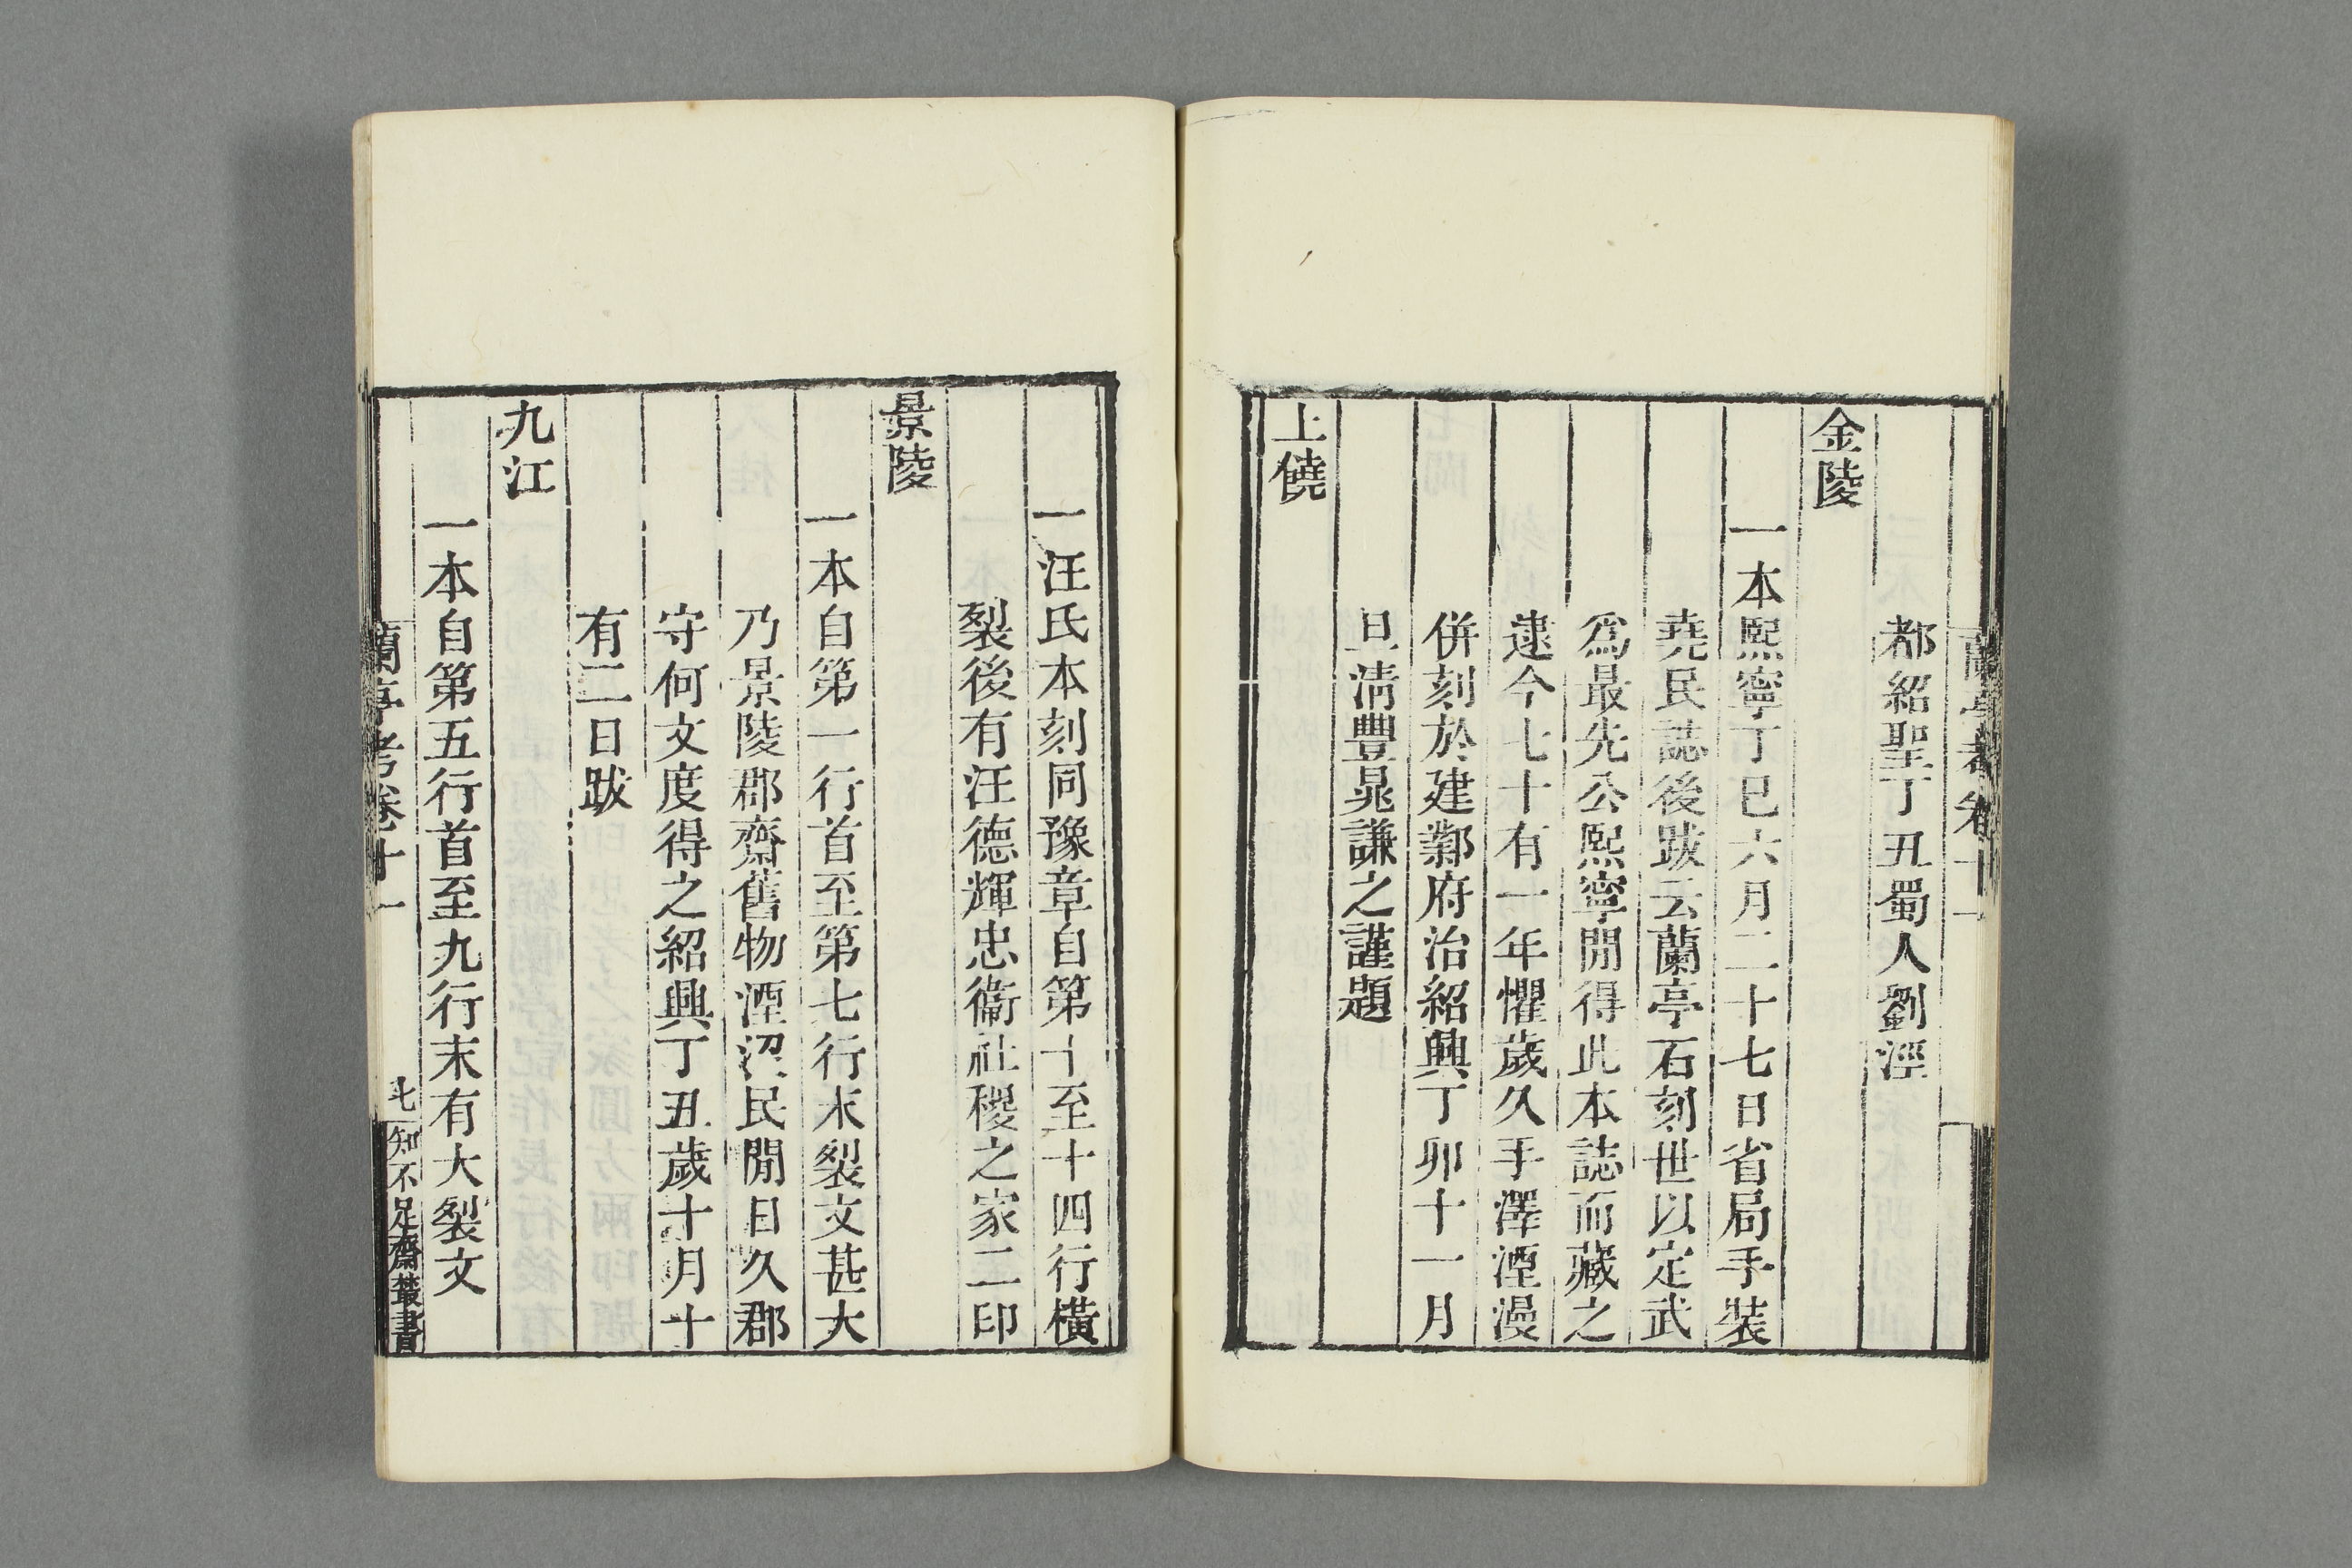 蘭亭考卷十一
都紹聖丁丑蜀人劉涇
金陵
一本熙寧丁巳六月二十七日省局手裝
堯民誌後跋云蘭亭石刻世以定武
爲最先公熙寧閒得此本誌而藏之
逮今七十有一年懼歲久手澤湮漫
併刻於建鄴府治紹興丁卯十一月
旦清豐晁謙之謹題
上饒
一汪氏本刻同豫章自第十至十四行橫
裂後有汪德輝忠衞社稷之家二印
景陵
一本自第一行首至第七行末裂文甚大
乃景陵郡齋舊物湮沒民閒日久郡
守何文度得之紹興丁丑歲十月十
有二日跋
九江
一本自第五行首至九行末有大裂文
蘭亭考卷十一
七
知不足齋叢書